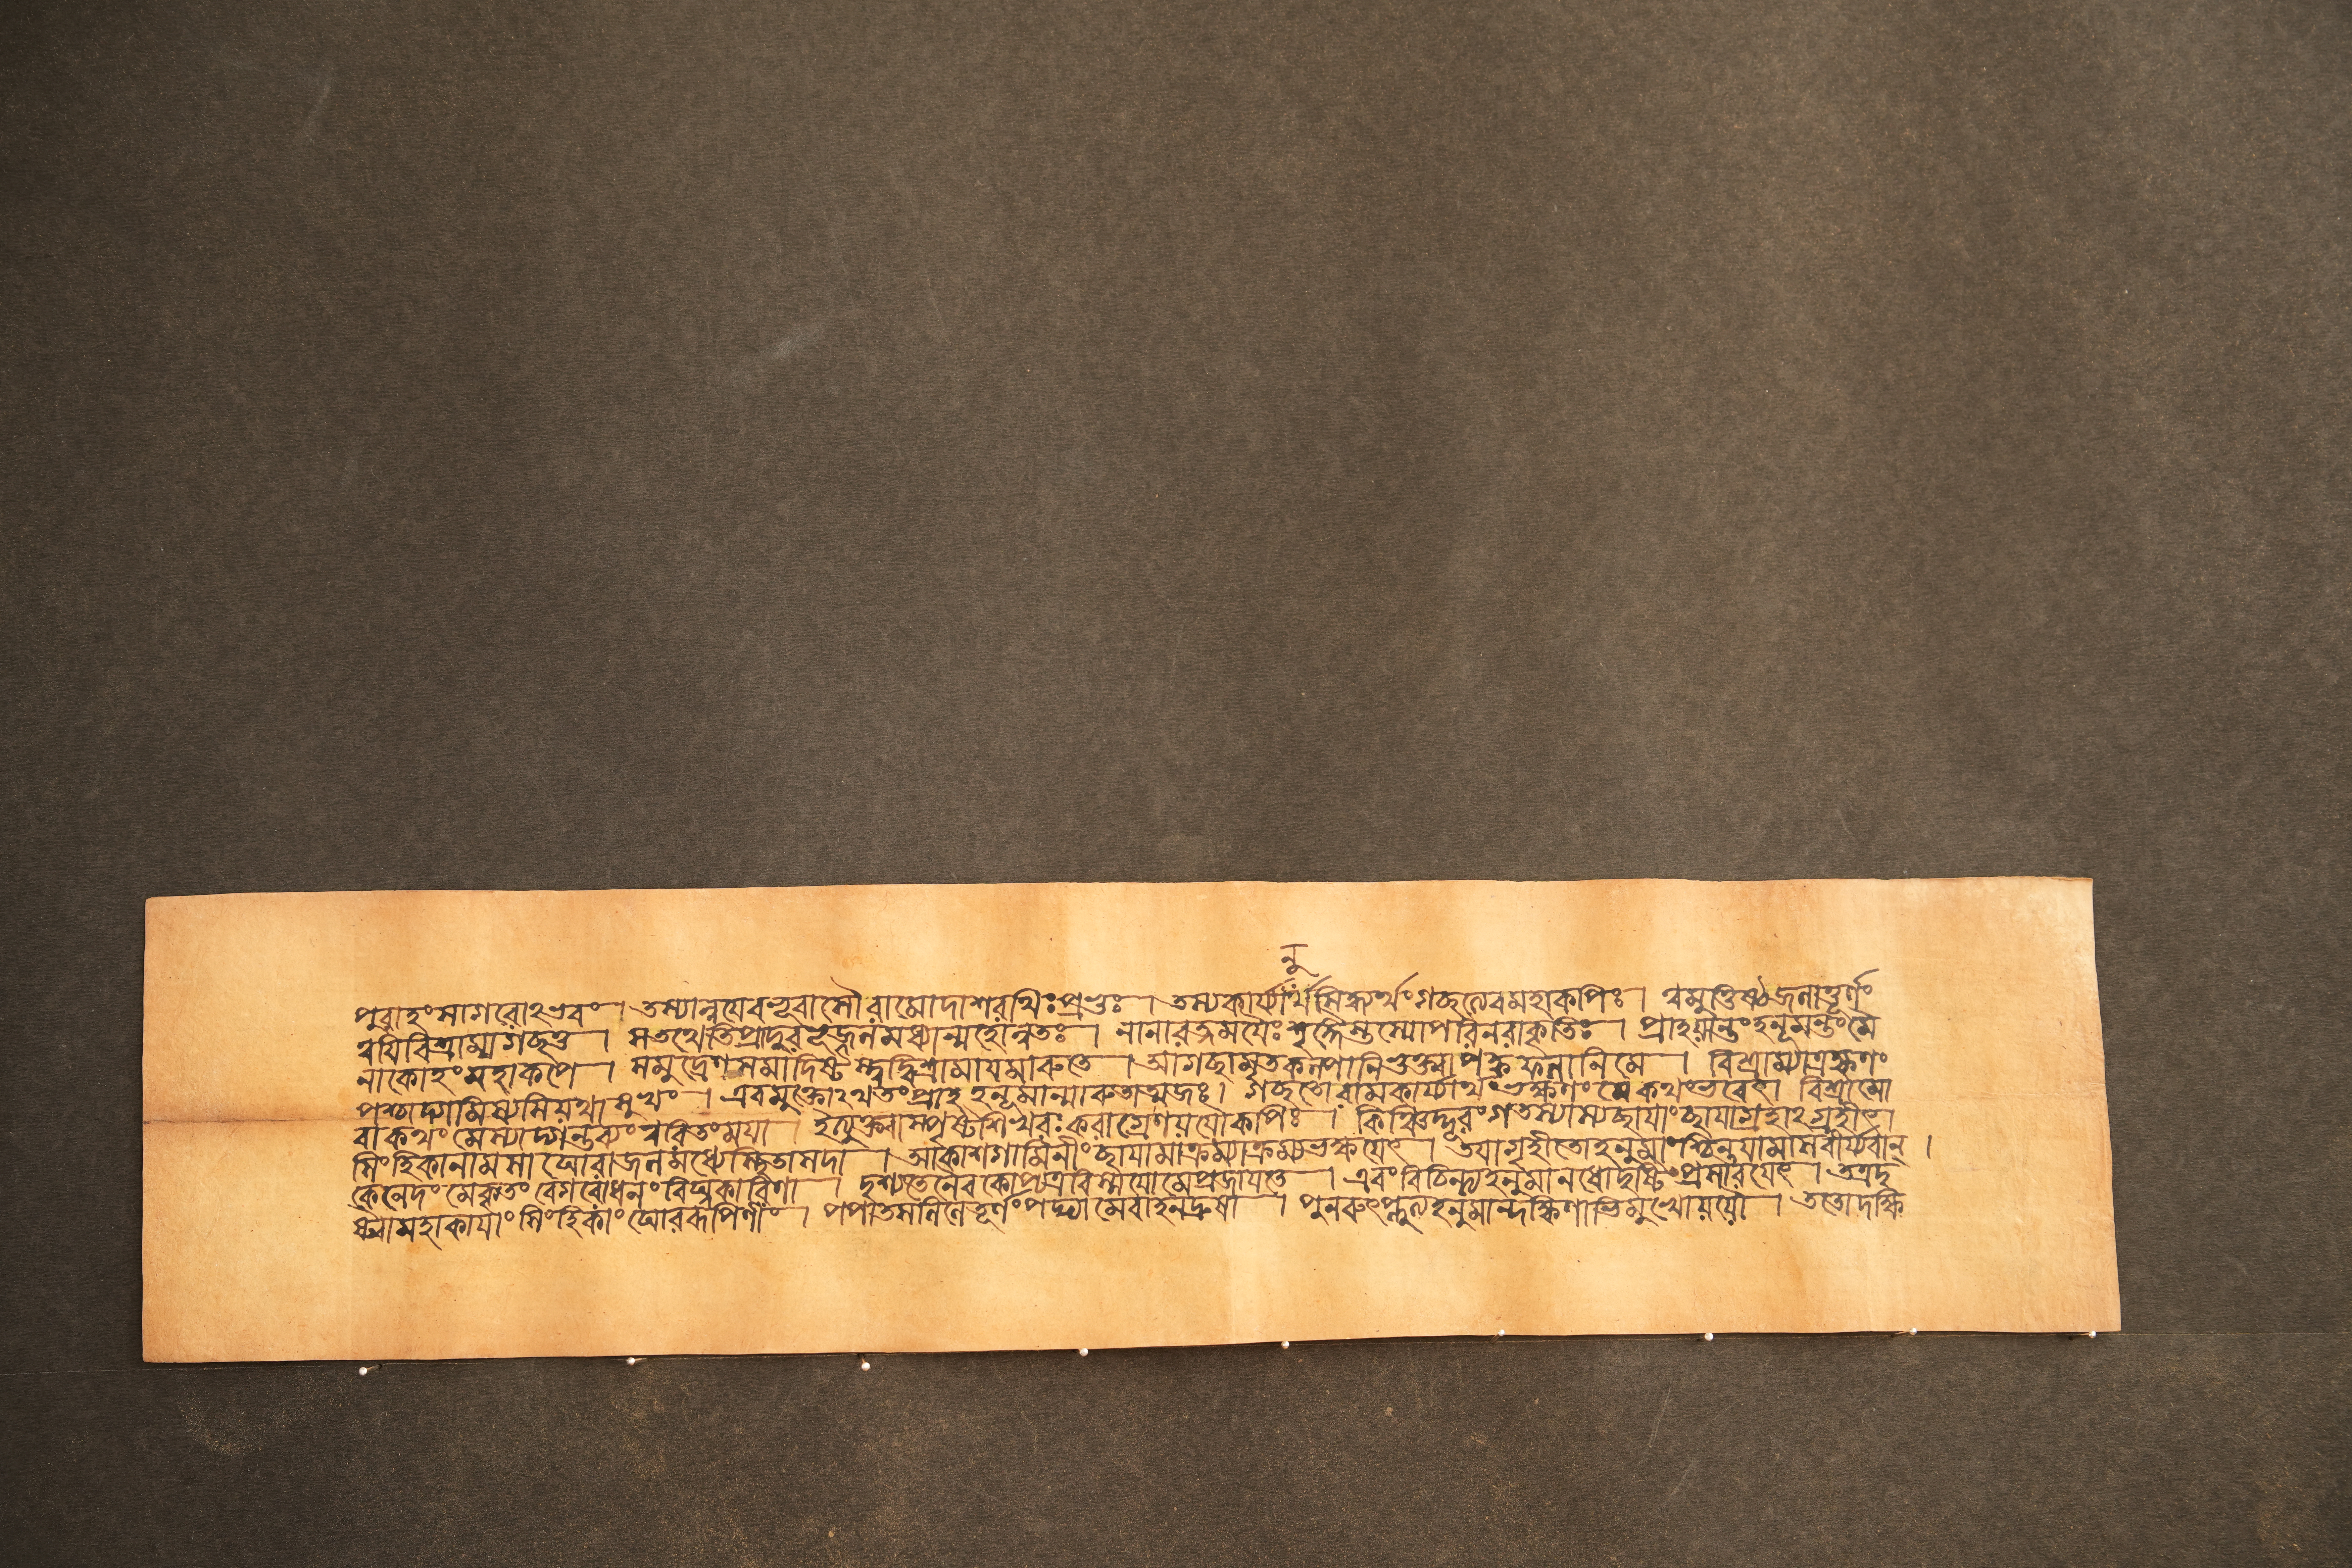 নু
পুরাহং সাগরোঽভবং । তস্যান্বয়ে বভূবাসৌ রামো দাশরথিঃ প্রভুঃ । তস্য কার্য্যার্থসিদ্ধ্যর্থং গচ্ছত্যেব মহাকপিঃ । ত্বমুত্তিষ্ঠ জলাত্তূর্ণং
ত্বয়ি বিশ্রাম্য গচ্ছতু । স তথেতি প্রাদুরভূজ্জলমধ্যান্মহোন্নতঃ । নানারত্নময়ৈঃ শৃঙ্গৈস্তস্যোপরি নরাকৃতিঃ । প্রাহ যান্তং হনূমন্তং মৈ
নাকোহং মহাকপে । সমুদ্রেণ সমাদিষ্টস্ত্বদ্বিশ্রামায় মারুতে । আগচ্ছামৃতকল্পানি ভুক্ত্বা পক্বফলানি মে । বিশ্রাম্যাত্র ক্ষণং
পশ্চাদ্গমিষ্যসি যথাসুখং । এবমুক্তোঽথ তং প্রাহ হনূমান্মারুতাত্মজঃ । গচ্ছতো রামকার্য্যার্থং ভক্ষণং মে কথং ভবেৎ । বিশ্রামো
বা কথং মে স্যাদ্গন্তব্যং ত্বরিতং ময়া । ইত্যুক্ত্বা স্পৃষ্টশিখরঃ করাগ্রেণ যযৌ কপিঃ । কিঞ্চিদ্দূরং গতস্যাস্য ছায়াং ছায়াগ্রহাঽগ্রহীৎ ।
সিংহিকা নাম সা ঘোরা জলমধ্যে স্থিতা সদা । আকাশগামিনীং ছায়ামাক্রম্যাক্রম্য ভক্ষয়েৎ । তয়া গৃহীতো হনুমাংশ্চিন্তয়ামাস বীর্য্যবান্ ।
কেনেদং মে কৃতং বেগরোধনং বিঘ্নকারিণা । দৃশ্যতে নৈব কোপ্যত্র বিস্ময়ো মে প্রজায়তে । এবং বিচিন্ত্য হনুমানধো দৃষ্টিং প্রসারয়েৎ । তত্র দৃ
ষ্ট্বা মহাকায়াং সিংহিকাং ঘোররূপিণীং । পপাত সলিলে তূর্ণং পদ্ভ্যামেবাহনদ্রুষা । পুনরুৎপ্লুত্য হনুমান্দক্ষিণাভিমুখো যযৌ । ততো দক্ষি